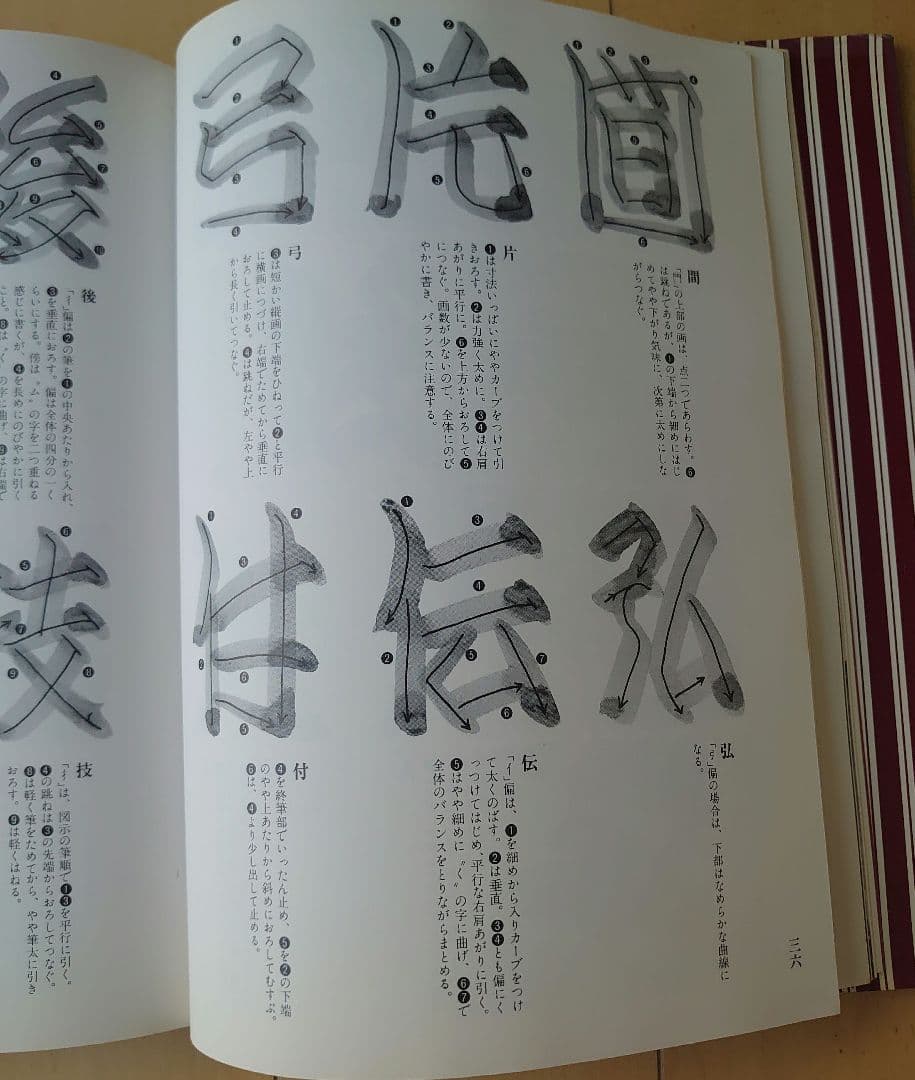 間
「門」の上部の画は、点二つであらわす。❻
は跳ねであるが、❶の下端から細めにはじ
めてやや下がり気味に、次第に太めにしな
がらつなぐ。
片
❶は寸法いっぱいにややカーブをつけて引
きおろす。❷は力強く太めに。❸❹は右肩
あがりに平行に。❻を上方からおろして❺
につなぐ。画数が少ないので、全体にのび
やかに書き、バランスに注意する。
弓
❸は短かい縦画の下端をひねって❷と平行
に横画につづけ、右端でためてから垂直に
おろして止める。❹は跳ねだが、左やや上
から長く引いてつなぐ。
弘
「弓」偏の場合は、下部はなめらかな曲線に
なる。
伝
「亻」偏は、❶を細めから入りカーブをつけ
て太くのばす。❷は垂直。❸❹とも偏にく
っつけてはじめ、平行な右肩あがりに引く。
❺はやや細めに〝く〟の字に曲げ、❻❼で
全体のバランスをとりながらまとめる。
付
❹を終筆部でいったん止め、❺を❷の下端
のやや上あたりから斜めにおろしてむすぶ。
❻は、❹より少し出して止める。
三六
後
「彳」偏は❷の筆を❶の中央あたりから入れ、
❸を垂直におろす。偏は全体の四分の一く
らいにする。傍は〝ム〟の字を二つ重ねる
感じに書くが、❹を長めにのびやかに引く
技
「扌」は、図示の筆順で❶❸を平行に引く。
❹の跳ねは❸の先端からおろしてつなぐ。
❽は軽く筆をためてから、やや筆太に引き
おろす。❾は軽くはねる。